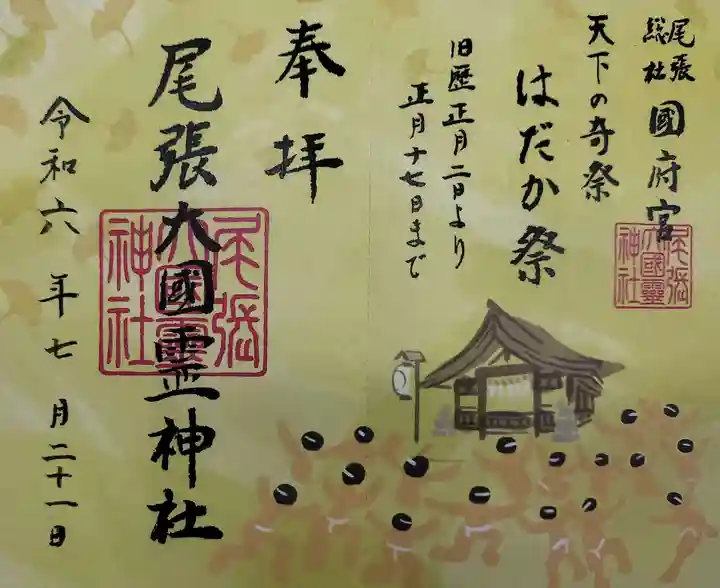 尾張
総社
國府宮
天下の奇祭
はだか祭
旧歴正月二日より
正月十七日まで
奉拝
尾張大國霊神社
令和六年七月二十一日
尾張
大國霊
神社
尾張
大國霊
神社